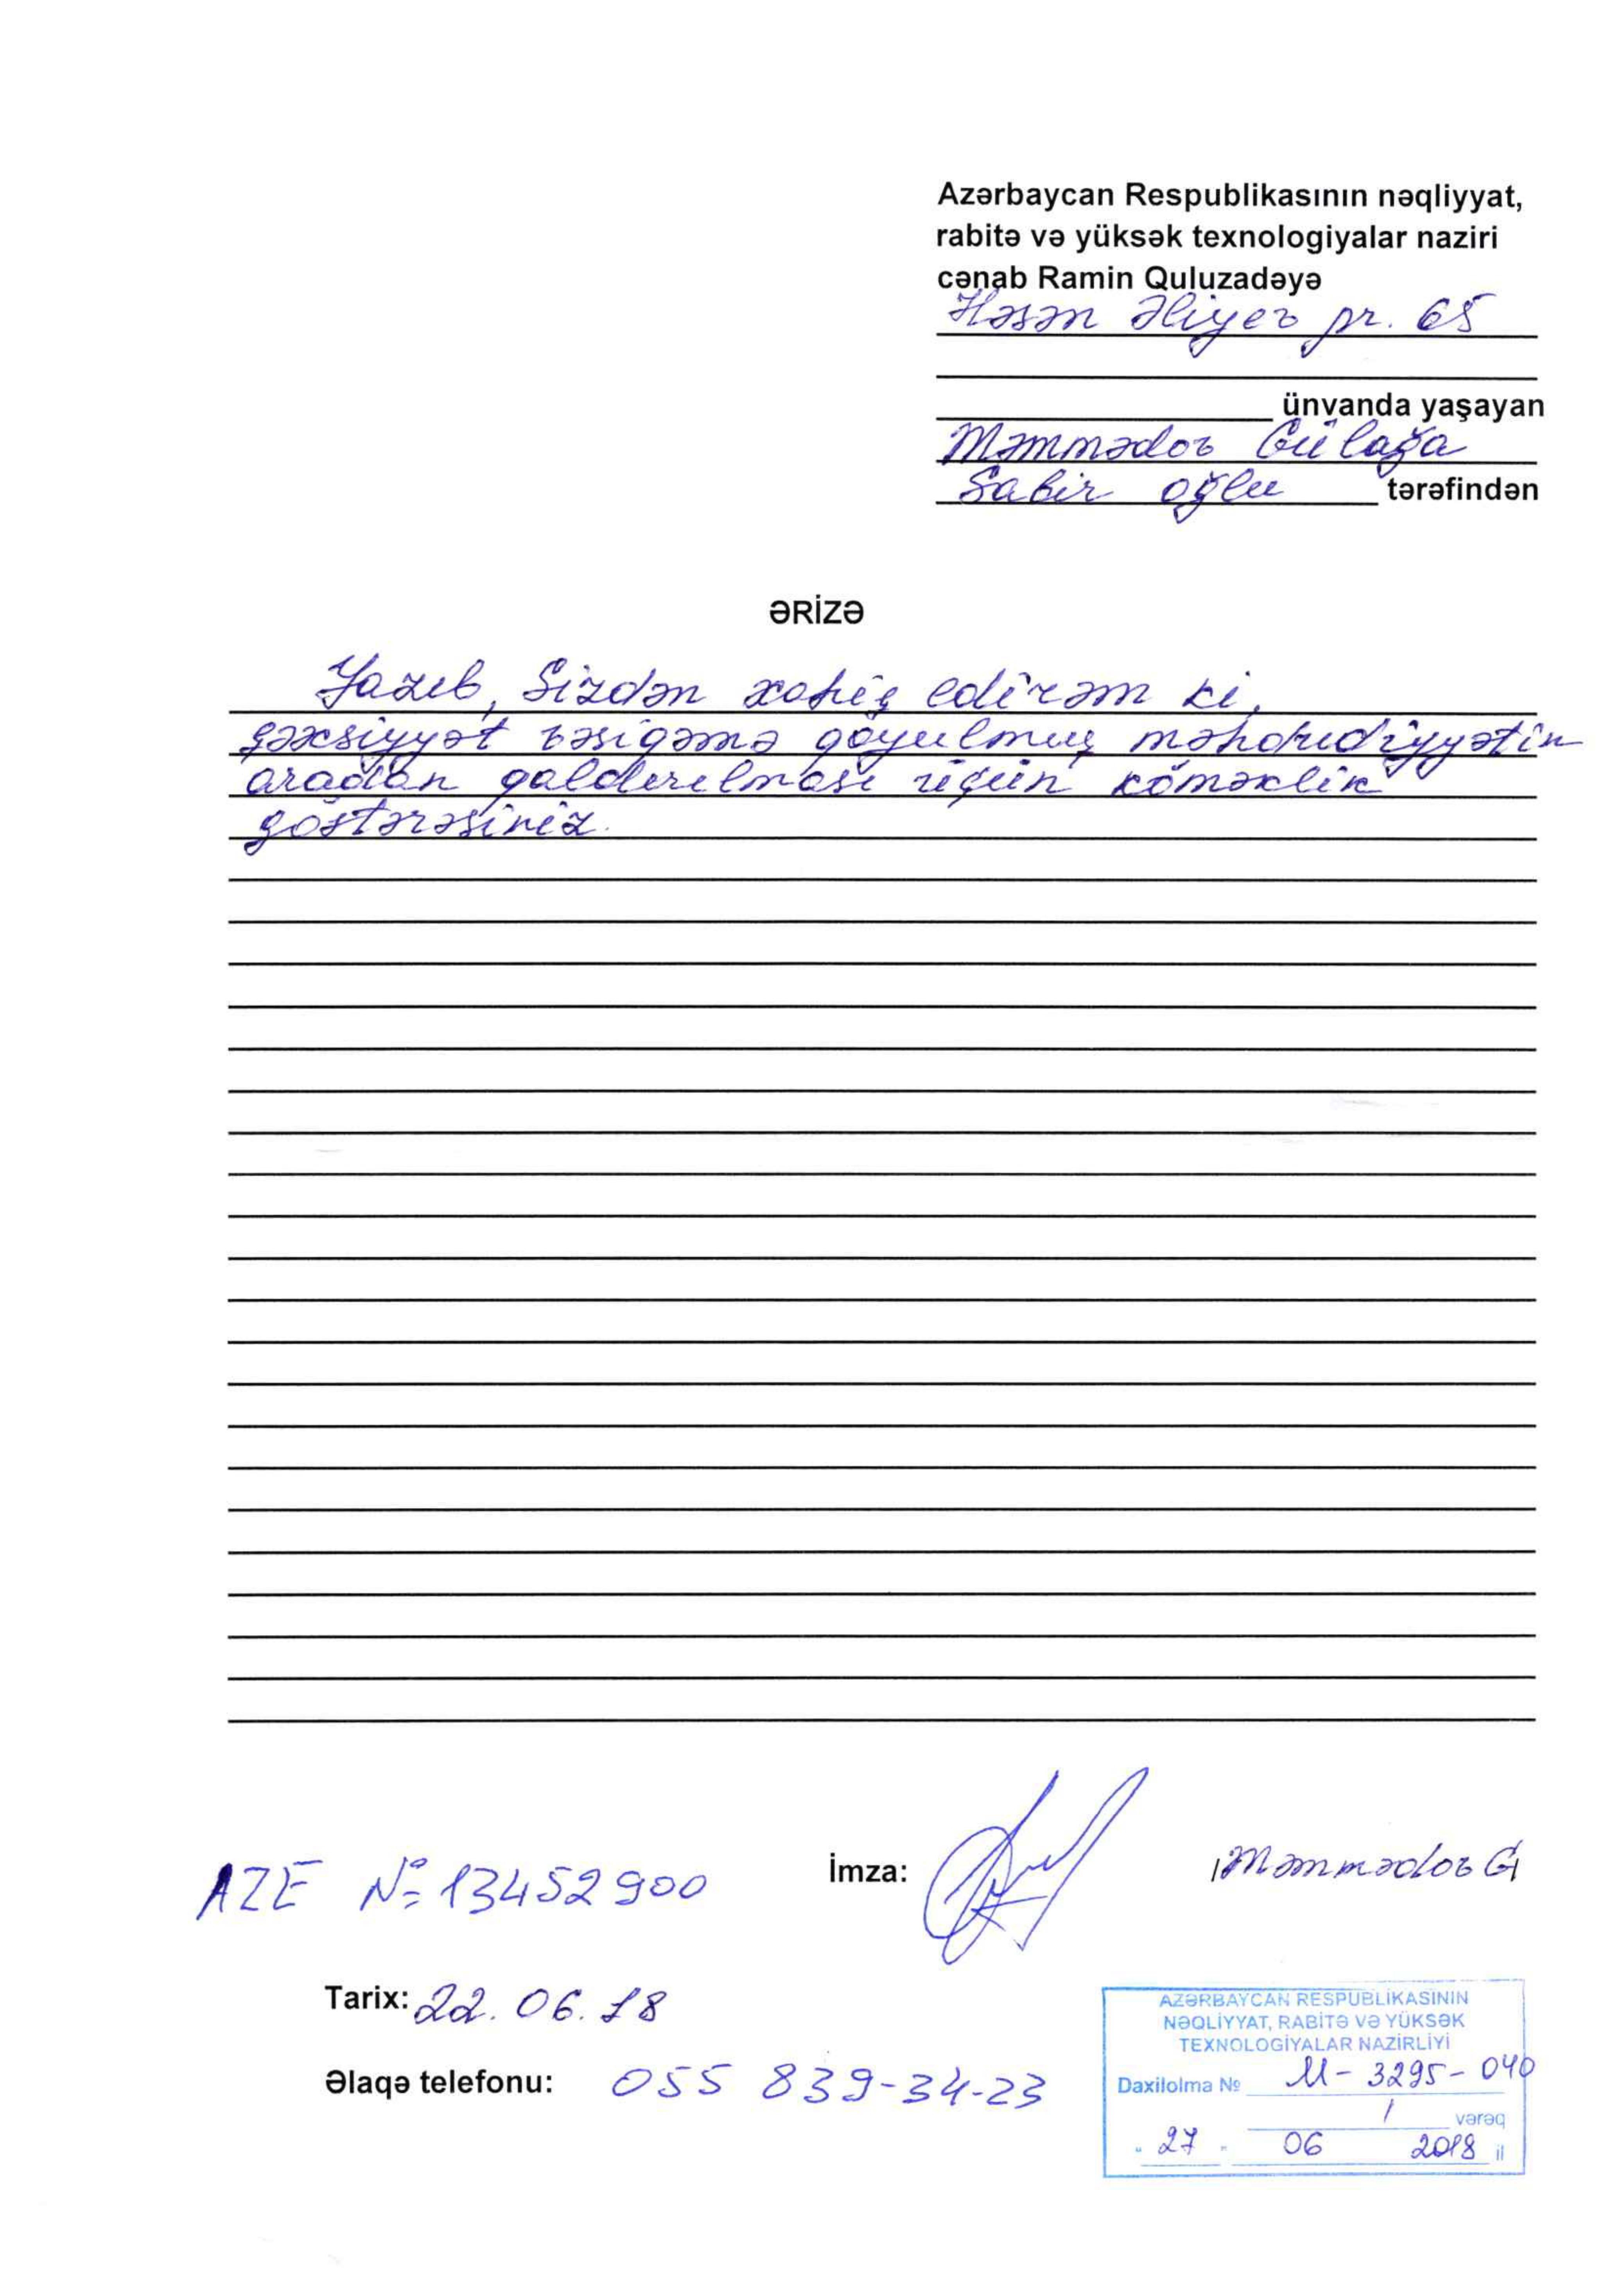 Azərbaycan Respublikasının nəqliyyat,
rabitə və yüksək texnologiyalar naziri
cənab Ramin Quluzadəyə
Həsən Əliyev pr. 65
ünvanda yaşayan
Məmmədov Gülağa
Sabir oğlu tərəfindən
ƏRİZƏ
Yazıb, Sizdən xahiş edirəm ki,
şəxsiyyət vəsiqəmə qoyulmuş məhdudiyyətin
aradan qaldırılması üçün köməklik
göstərəsiniz.
AZE № 13452900 İmza: Məmmədov G
Tarix: 22.06.18
Əlaqə telefonu: 055 839-34-23
AZƏRBAYCAN RESPUBLİKASININ
NƏQLİYYAT, RABİTƏ VƏ YÜKSƏK
TEXNOLOGİYALAR NAZİRLİYİ
Daxilolma № M-3295-040
1 vərəq
"27" 06 2018 il